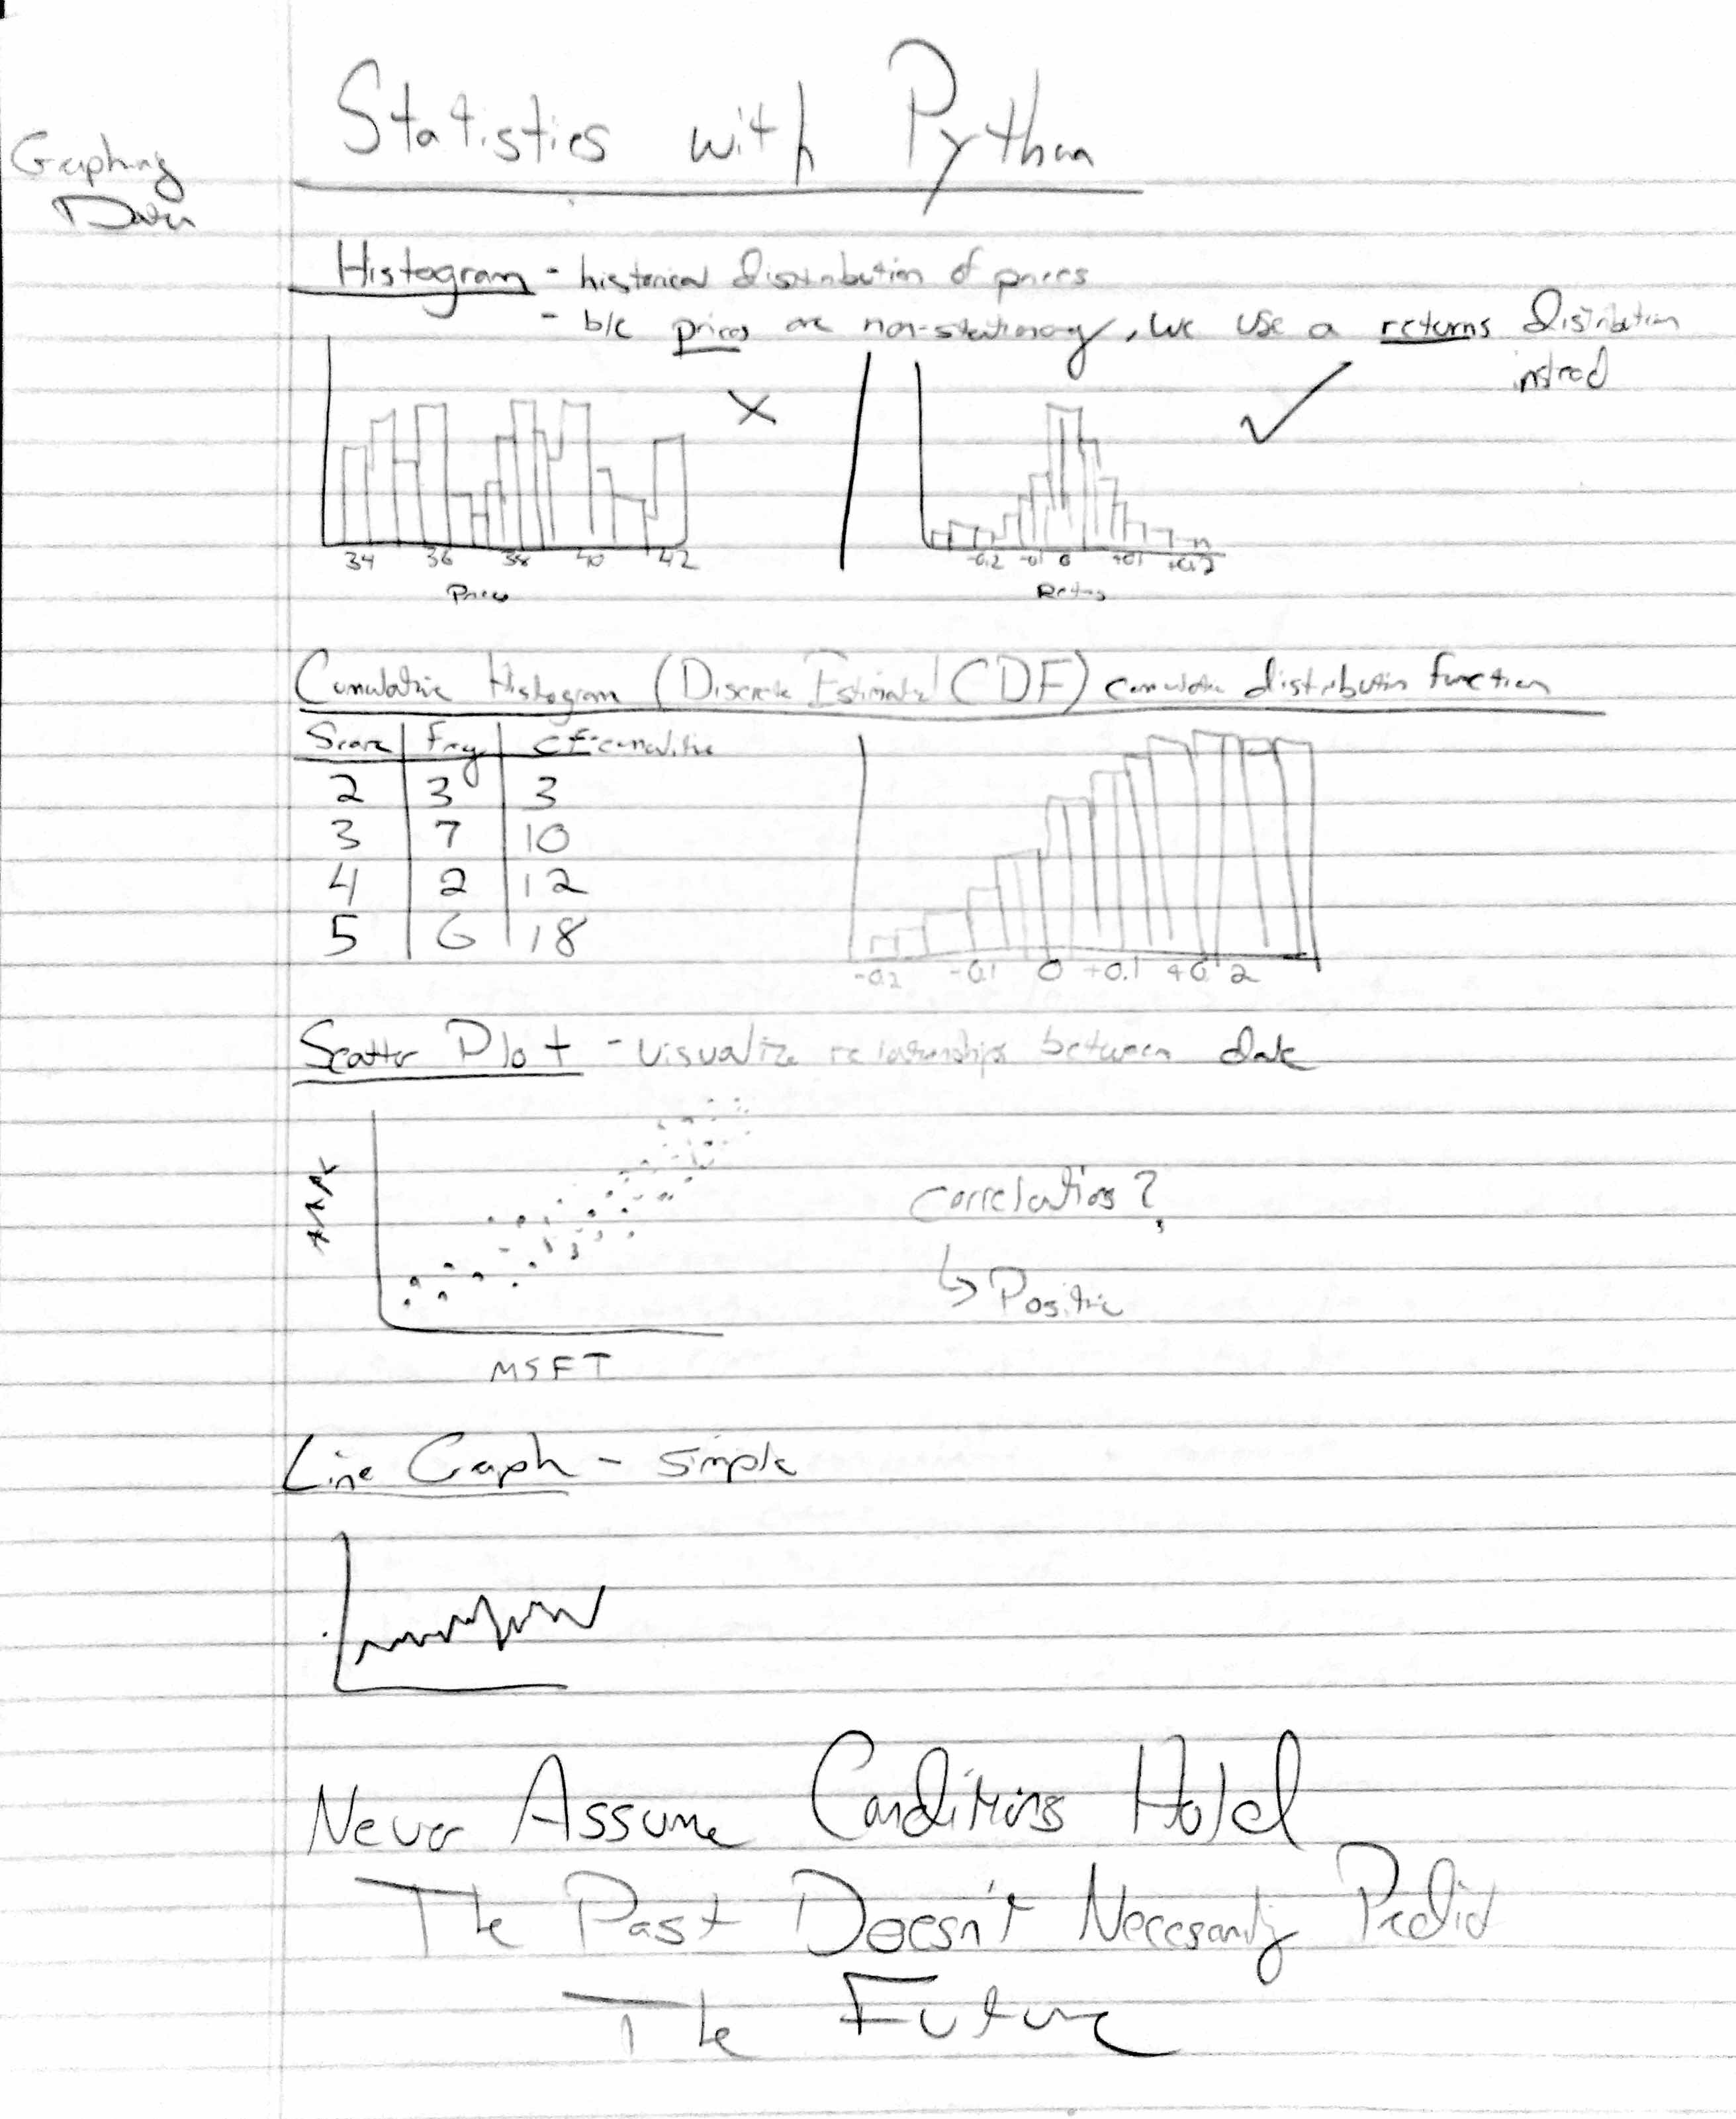 Statistics with Python
Graphing
Data
Histogram - historical distribution of prices
- b/c prices are non-stationary, we use a returns distribution
instead
34 36 38 40 42
Prices
-0.2 -0.1 0 +0.1 +0.2
Returns
Cumulative Histogram (Discrete Estimated CDF) cumulative distribution function
Score Freq CF-cumulative
2 3 3
3 7 10
4 2 12
5 6 18
-0.2 -0.1 0 +0.1 +0.2
Scatter Plot - visualize relationships between data
Correlations?
↳ Positive
MSFT
Line Graph - simple
Never Assume Conditions Hold
The Past Doesn't Necessarily Predict
The Future